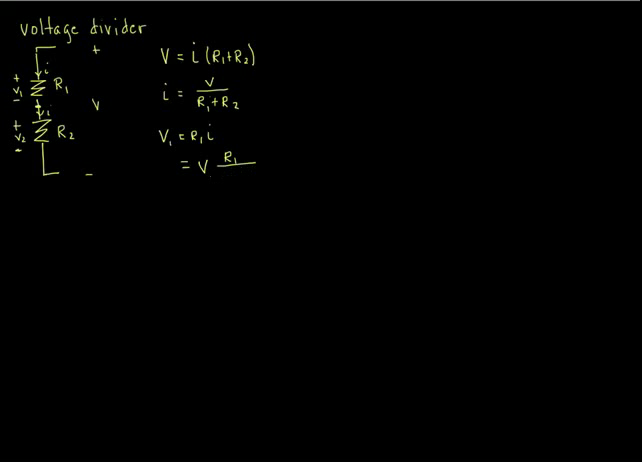 voltage divider
+
i
+ V₁ - R₁
V = i (R₁+R₂)
i
V
i = V / R₁+R₂
+ V₂ - R₂
V₁ = R₁ i
= V R₁
-